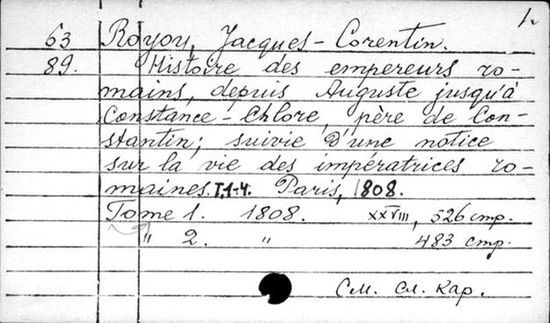 1.
63 Royou, Jacques-Corentin.
89. Histoire des empereurs ro-
mains, depuis Auguste jusqu'à
Constance-Chlore, père de Con-
stantin; suivie d'une notice
sur la vie des impératrices ro-
maines. T.1-4. Paris, 1808.
Tome 1. 1808. XXVIII, 526 стр.
" 2. " 483 стр.
См. сл. кар.